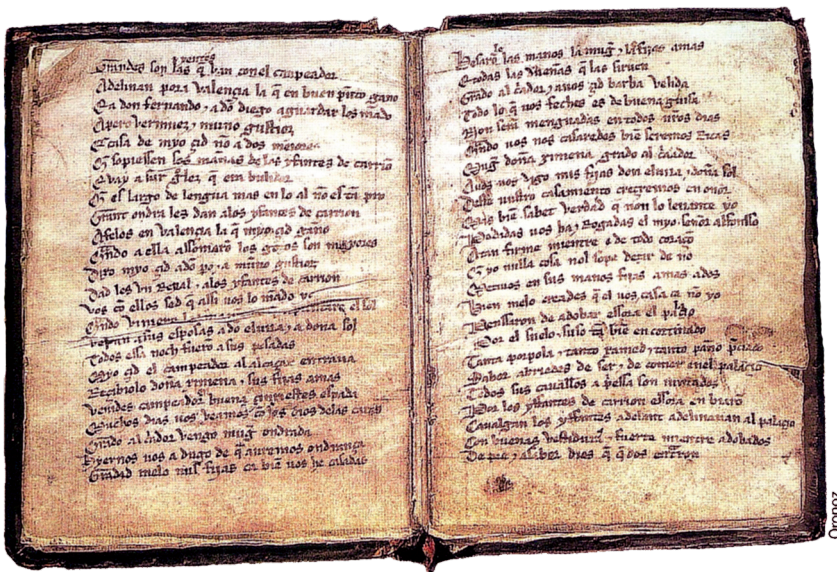 Grandes son las yentes q̃ van conel canpeador
Adelinan pora valençia la q̃ en buen pũto gano
E a don fernando, a dõ diego aguardar los mãdo
Apero vermuez, muño gustioz
En casa de myo çid nõ a dos meiores
Q̃ sopiessen sos mañas de los yfantes de carriõ
E va y asur gõçalez q̃ era bulidor
Q̃ es largo de lengua mas en lo al nõ es tã pro
Grant ondra les dan alos yfantes de carrion
Afelos en valençia la q̃ myo çid gaño
Q̃ndo a ella assomaron los gozos son mayores
Dixo myo çid adõ po, a muño gustioz
Dad les vn Reyal, alos yfantes de carrion
vos cõ ellos sed q̃ assi vos lo mãdo yo
Q̃ndo viniere la apuntare el sol
verán asus esposas a do eluira, a dona sol
Todos essa noch fuerõ a sus posadas
Myo çid el campeador al alcaçar entraua
Reçibiolo doña ximena, sus fijas amas
venides campeador buena çinxiestes espada
Muchos dias vos veamos cõ los oios delas caras
Grado al c̃ador vengo mug̃ ondrada
Hyernos vos adugo de q̃ auremos ondrança
Gradid melo mis fijas ca biẽ vos he casadas
Besarõ le las manos la mug̃, las fijas amas
E todas las dueñas q̃ las siruen
Grado al c̃ador, a vos çid barba velida
Todo lo q̃ vos feches es de buena guisa
Non serã menguadas en todos vr̃os dias
Q̃ndo vos nos casaredes biẽ seremos Ricas
Mug̃ doña ximena, grado al c̃ador
Auos uos digo mis fijas don eluira, doña sol
Deste vuestro casamiento creçremos en onor
Mas biẽ sabet verdad q̃ non lo leuante yo
Pedidas vos ha, Rogadas el myo señor alfonsso
Atan firme mientre, de todo coraçõ
Q̃ yo nulla cosa nol sope dezir de no
Metiuos en sus manos fijas amas ados
Bien melo creades q̃ el uos casa ca nõ yo
Penssaron de adobar essora el palaçio
Por el suelo, suso tã biẽ encortinado
Tanta porpola, tanto xamed, tanto paño p̃çiado
Sabor abriedes de ser, de comer enel palaçio
Todos sus caualleros a pssa son iuntados
Por los yffantes de carrion essora enbiarõ
Caualgan los yffantes adelant adelinauan al palaçio
Con buenas vestiduras, fuerte mientre adobados
De pie, a sabor dios q̃ q̃dos entraron
Oronoz